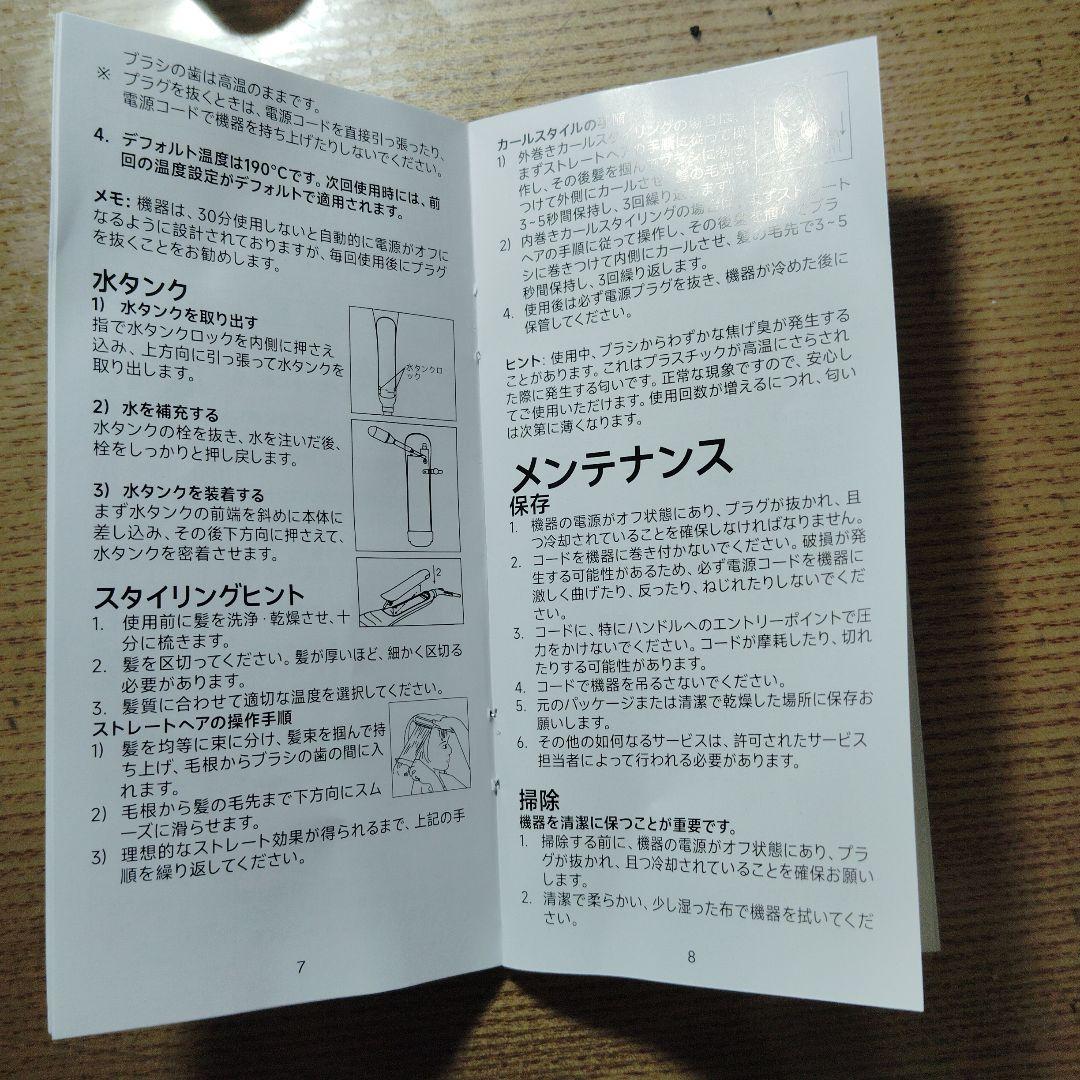 ブラシの歯は高温のままです。
※ プラグを抜くときは、電源コードを直接引っ張ったり、
電源コードで機器を持ち上げたりしないでください。
4. デフォルト温度は190°Cです。次回使用時には、前
回の温度設定がデフォルトで適用されます。
メモ: 機器は、30分使用しないと自動的に電源がオフに
なるように設計されておりますが、毎回使用後にプラグ
を抜くことをお勧めします。
水タンク
1) 水タンクを取り出す
指で水タンクロックを内側に押さえ
込み、上方向に引っ張って水タンクを
取り出します。
水タンクロ
ック
2) 水を補充する
水タンクの栓を抜き、水を注いだ後、
栓をしっかりと押し戻します。
3) 水タンクを装着する
まず水タンクの前端を斜めに本体に
差し込み、その後下方向に押さえて、
水タンクを密着させます。
2
スタイリングヒント
1. 使用前に髪を洗浄·乾燥させ、十
分に梳きます。
2. 髪を区切ってください。髪が厚いほど、細かく区切る
必要があります。
3. 髪質に合わせて適切な温度を選択してください。
ストレートヘアの操作手順
1) 髪を均等に束に分け、髪束を掴んで持
ち上げ、毛根からブラシの歯の間に入
れます。
2) 毛根から髪の毛先まで下方向にスム
ーズに滑らせます。
3) 理想的なストレート効果が得られるまで、上記の手
順を繰り返してください。
7
カールスタイルの手順
1) 外巻きカールスタイリングの場合は、
まずストレートヘアの手順に従って操
作し、その後髪を掴んで
つけて外側にカールさせ、髪の毛先で
3~5秒間保持し、3回繰り返します。
2) 内巻きカールスタイリングの場合は、まずストレート
ヘアの手順に従って操作し、その後髪を掴んでブラ
シに巻きつけて内側にカールさせ、髪の毛先で3~5
秒間保持し、3回繰り返します。
4. 使用後は必ず電源プラグを抜き、機器が冷めた後に
保管してください。
ヒント: 使用中、ブラシからわずかな焦げ臭が発生する
ことがあります。これはプラスチックが高温にさらされ
た際に発生する匂いです。正常な現象ですので、安心し
てご使用いただけます。使用回数が増えるにつれ、匂い
は次第に薄くなります。
メンテナンス
保存
1. 機器の電源がオフ状態にあり、プラグが抜かれ、且
つ冷却されていることを確保しなければなりません。
2. コードを機器に巻き付かないでください。破損が発
生する可能性があるため、必ず電源コードを機器に
激しく曲げたり、反ったり、ねじれたりしないでくだ
さい。
3. コードに、特にハンドルへのエントリーポイントで圧
力をかけないでください。コードが摩耗したり、切れ
たりする可能性があります。
4. コードで機器を吊るさないでください。
5. 元のパッケージまたは清潔で乾燥した場所に保存お
願いします。
6. その他の如何なるサービスは、許可されたサービス
担当者によって行われる必要があります。
掃除
機器を清潔に保つことが重要です。
1. 掃除する前に、機器の電源がオフ状態にあり、プラ
グが抜かれ、且つ冷却されていることを確保お願い
します。
2. 清潔で柔らかい、少し湿った布で機器を拭いてくだ
さい。
8